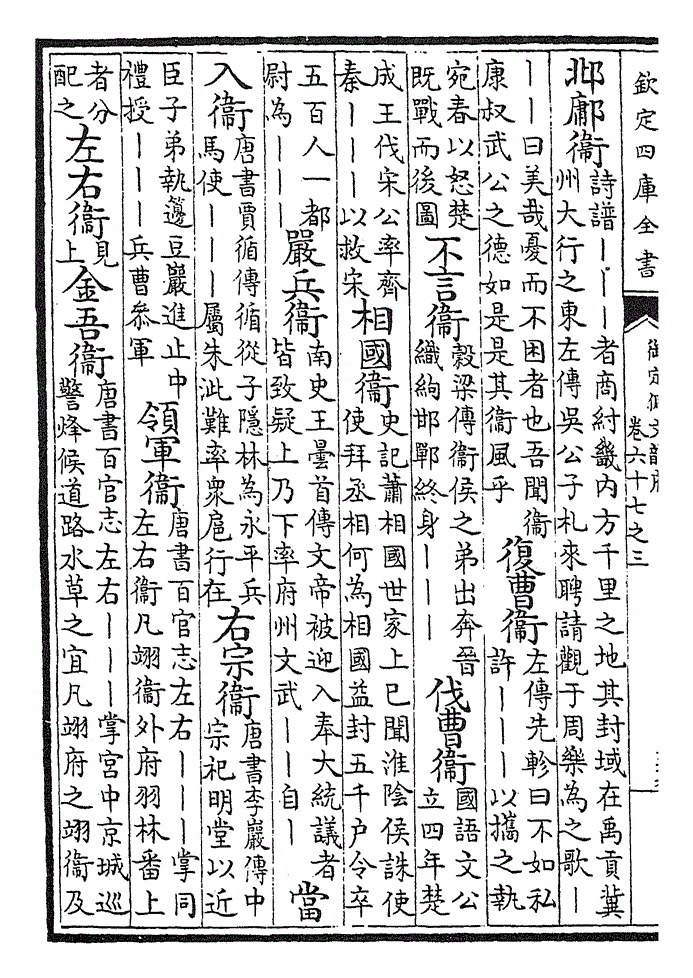 欽定四庫全書
御定佩文韻府
卷六十七之三
邶鄘衞詩譜｜｜｜者商紂畿内方千里之地其封域在禹貢冀州大行之東左傳吳公子札來聘請觀于周樂為之歌｜
｜｜曰美哉憂而不困者也吾聞衞康叔武公之德如是是其衞風乎復曹衞左傳先軫曰不如私許｜｜｜以攜之執
宛春以怒楚既戰而後圖不言衞穀梁傳衞侯之弟出奔晉織絇邯鄲終身｜｜｜伐曹衞國語文公立四年楚
成王伐宋公率齊秦｜｜｜以救宋相國衞史記蕭相國世家上已聞淮陰侯誅使使拜丞相何為相國益封五千户令卒
五百人一都尉為｜｜｜嚴兵衞南史王曇首傳文帝被迎入奉大統議者皆致疑上乃下率府州文武｜｜自｜當
入衞唐書賈循傳循從子隱林為永平兵馬使｜｜｜屬朱泚難率衆扈行在右宗衞唐書李巖傳中宗祀明堂以近
臣子弟執籩豆巖進止中禮授｜｜｜兵曹叅軍領軍衞唐書百官志左右｜｜｜掌同左右衞凡翊衞外府羽林番上
者分配之左右衞見上金吾衞唐書百官志左右｜｜｜掌宫中京城巡警烽候道路水草之宜凡翊府之翊衞及